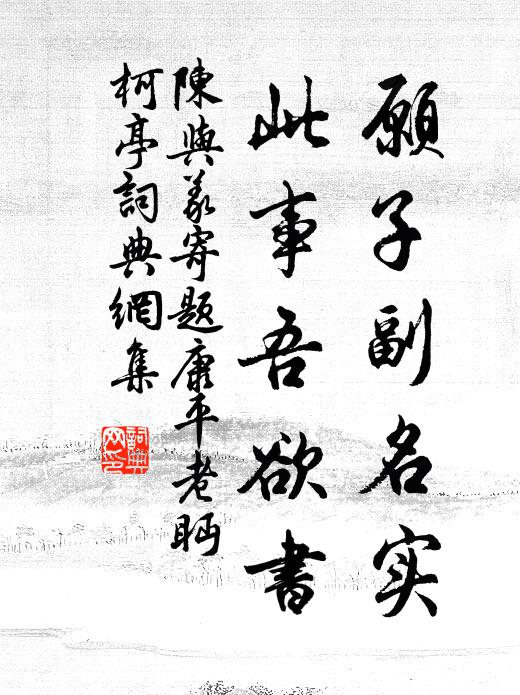 願子副名实
此事吾欲書
陳與義寄題康平老眄
柯亭詞典網集
詞典
网印